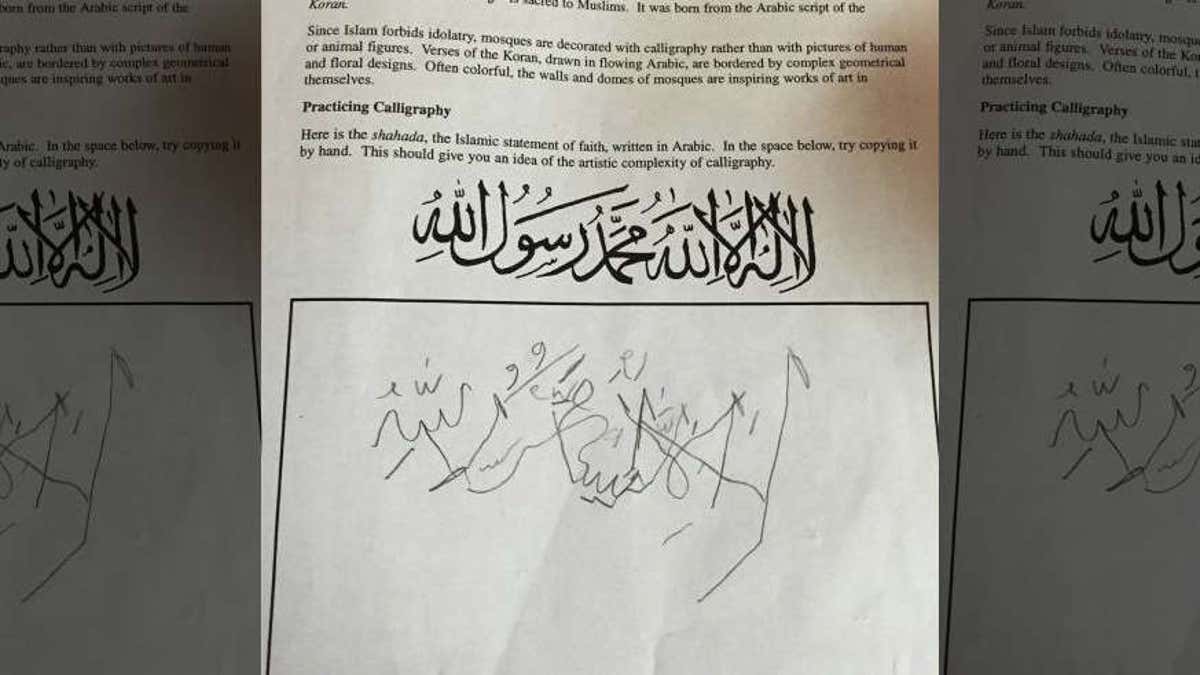 sacred to Muslims. It was born from the Arabic script of the
Koran.
Since Islam forbids idolatry, mosques are decorated with calligraphy rather than with pictures of human
or animal figures. Verses of the Koran, drawn in flowing Arabic, are bordered by complex geometrical
and floral designs. Often colorful, the walls and domes of mosques are inspiring works of art in
themselves.
Practicing Calligraphy
Here is the shahada, the Islamic statement of faith, written in Arabic. In the space below, try copying it
by hand. This should give you an idea of the artistic complexity of calligraphy.
لا إله إلا الله محمد رسول الله